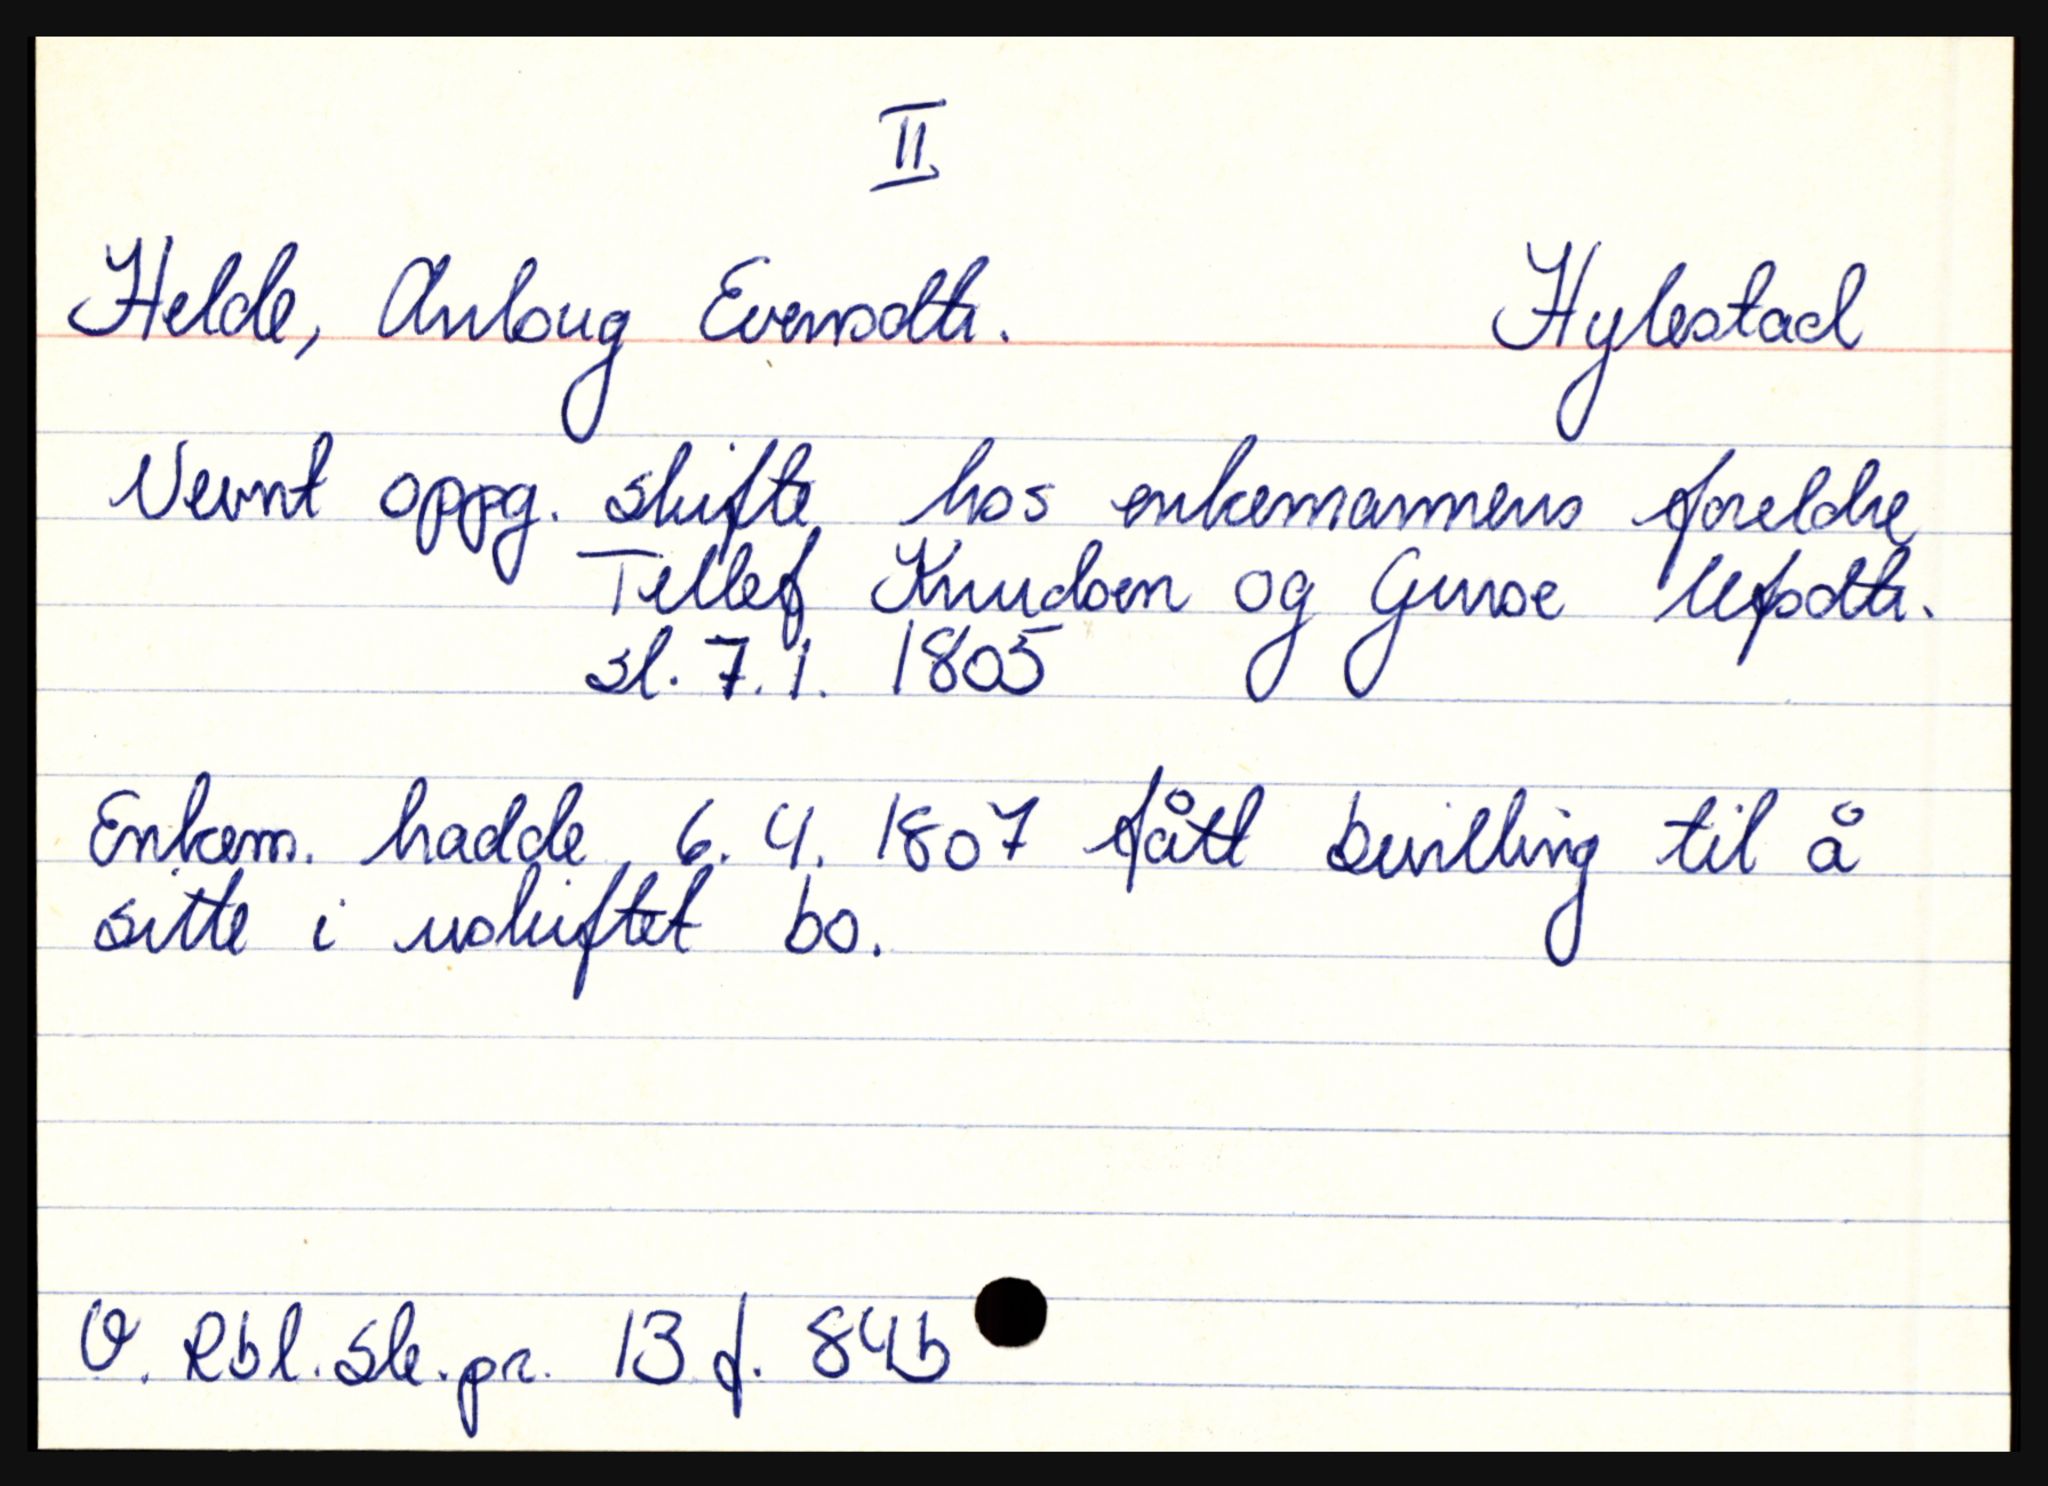 II
Helde, Anboug Evensdtr. Hylestad
Nevnt oppg. skifte hos enkemannens foreldre
Tellef Knudsen og Guroe Ufsdtr.
sl. 7.1. 1805
Enkem. hadde 6.4. 1807 fått bevilling til å
sitte i uskiftet bo.
O. Rbl. Sk.pr. 13 f. 84b